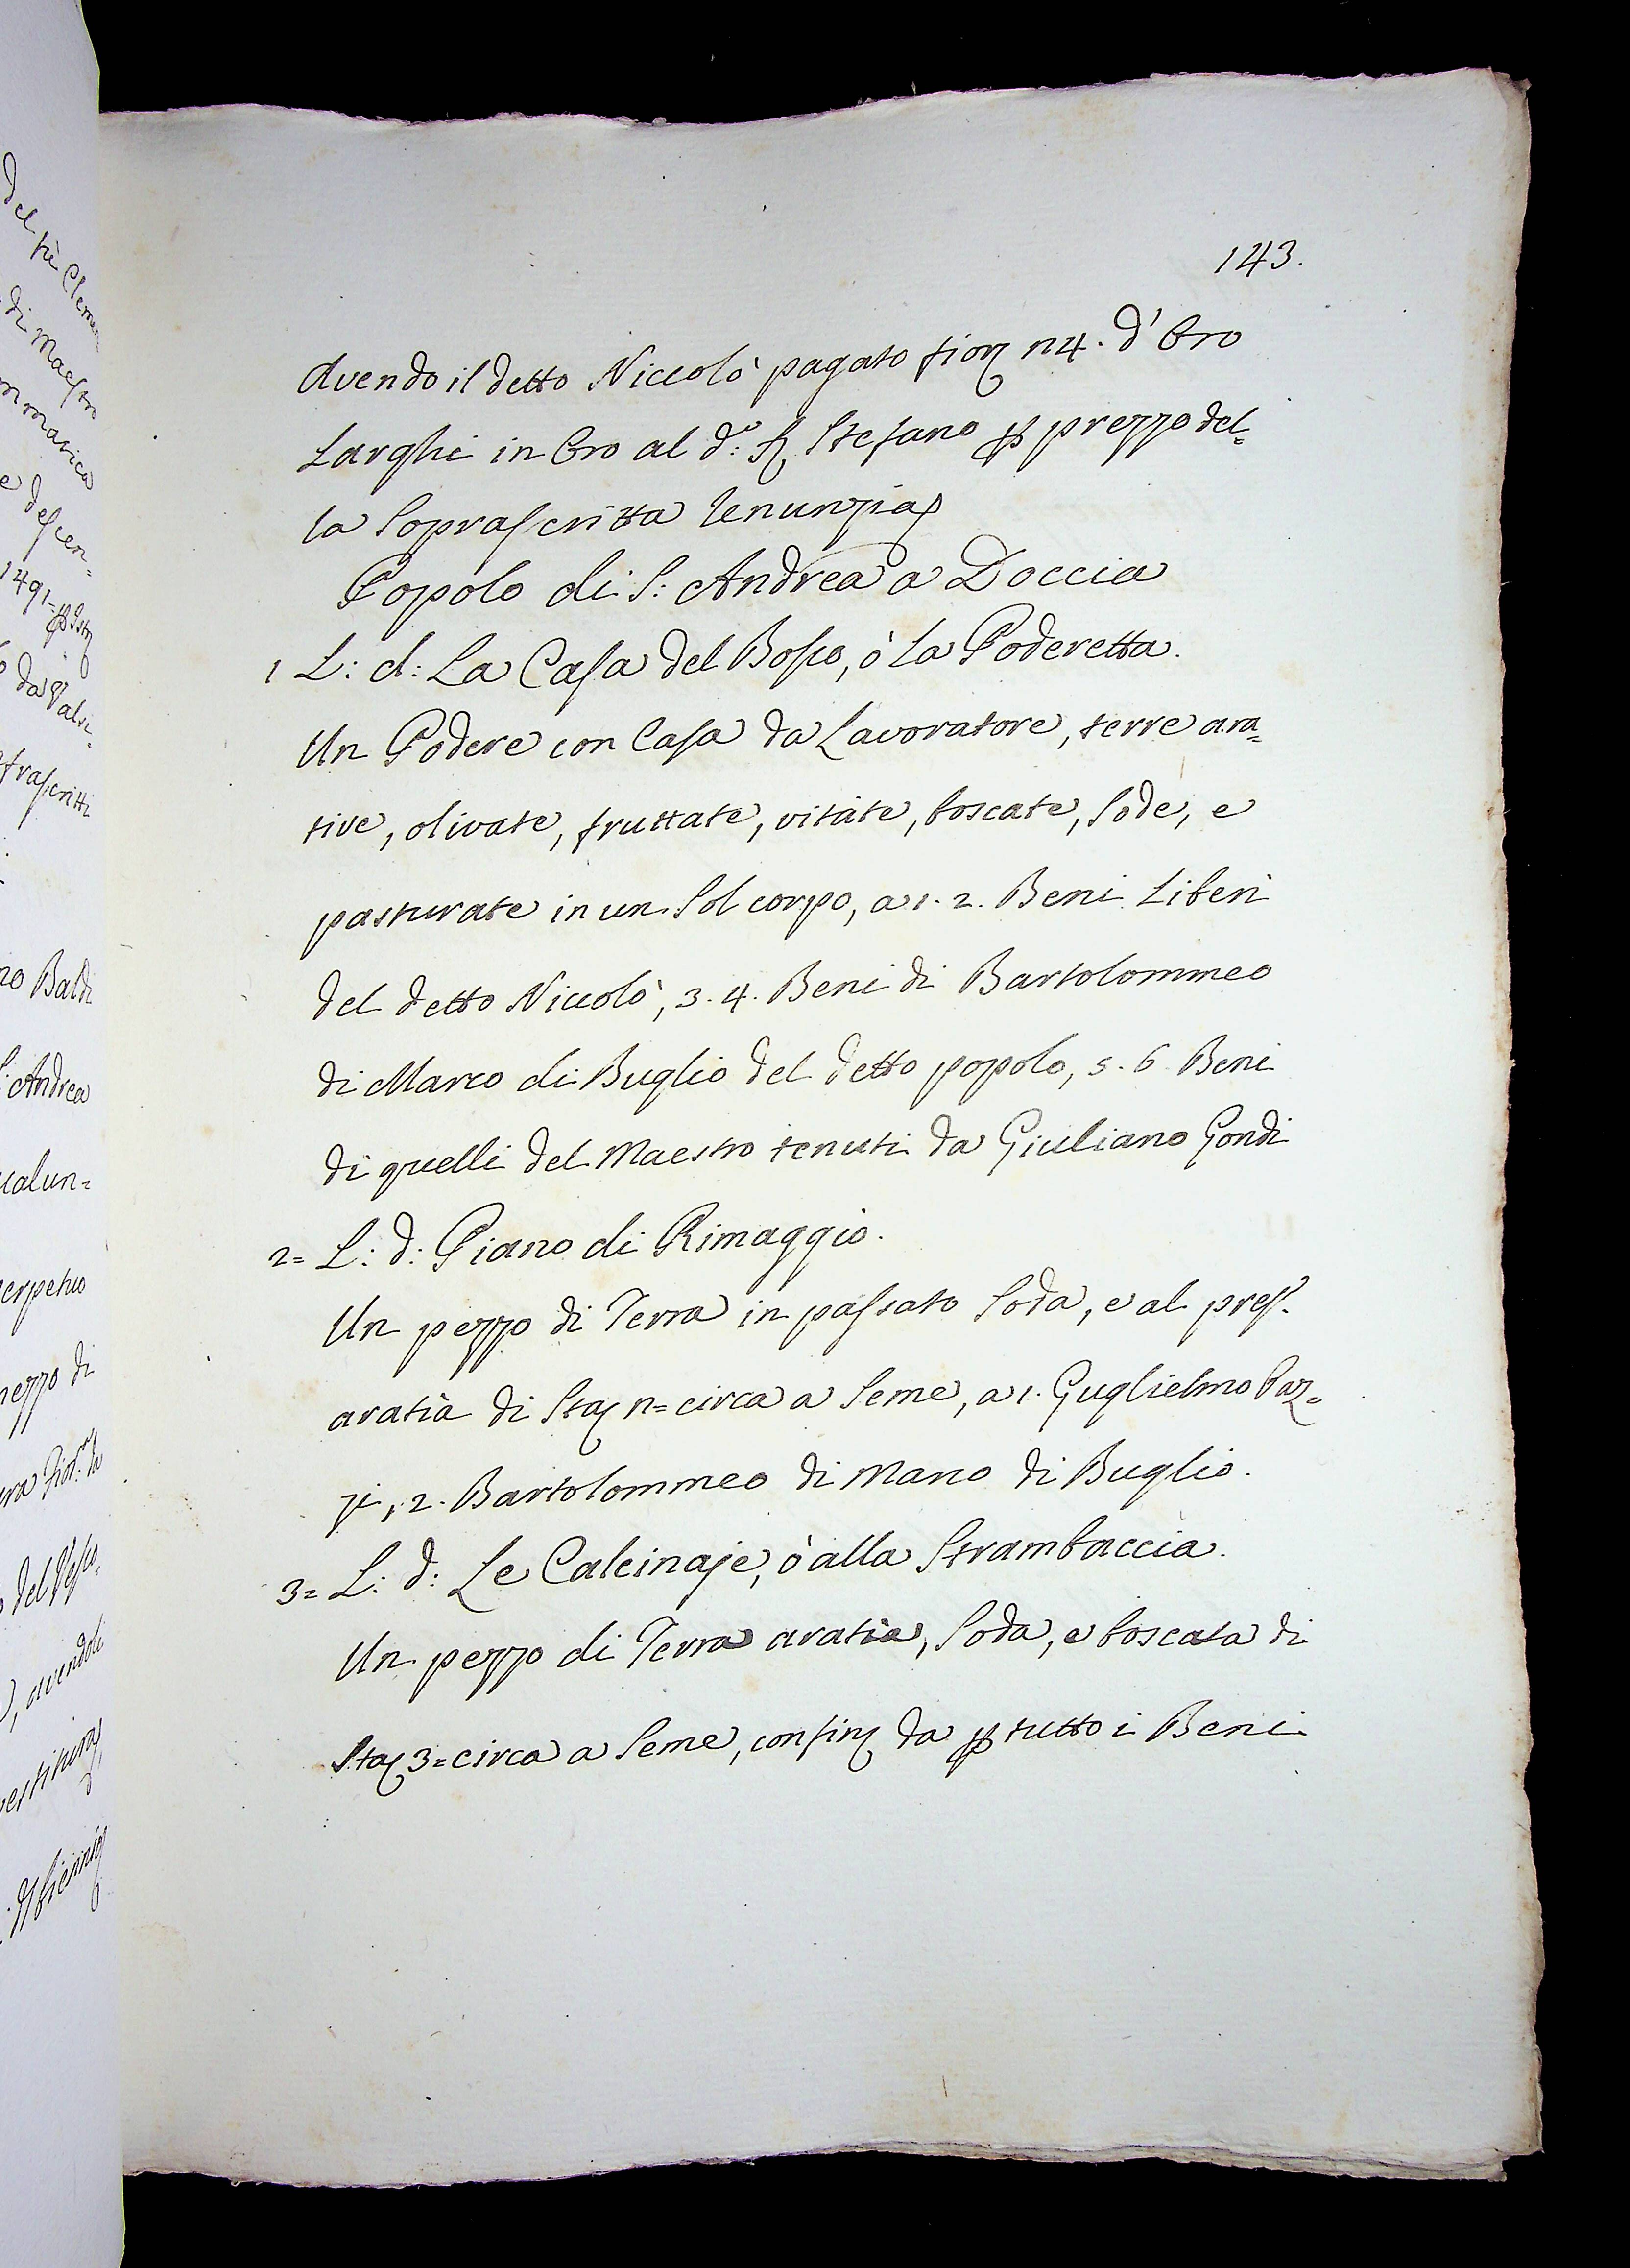 del piè Clemen
di Maestro
mmatica
e descen=
1491=
da Valsi.
frascritti
no Baldi
S: Andrea
ualun=
erpetuo
mezzo di
del Vesco.
, avendoli
143.
Avendo il detto Niccolò pagato fior. 24. d'Oro
Larghi in Oro al d.º Stefano p prezzo del=
la soprascritta renunzia
Popolo di S: Andrea a Doccia
1 L: d: La Casa del Bosco, ò la Poderetta.
Un Podere con Casa da Lavoratore, terre ara=
tive, olivate, fruttate, vitate, boscate, sode, e
pasturate in un sol corpo, a 1. 2. Beni Liberi
del detto Niccolò, 3. 4. Beni di Bartolommeo
di Marco di Buglio del detto popolo, 5. 6 Beni
di quelli del Maestro tenuti da Giuliano Gondi
2= L: d: Piano di Rimaggio.
Un pezzo di Terra in passato soda, e al pres.
aratia di Sta. 2= circa a seme, a 1. Guglielmo Paz=
zi, 2. Bartolommeo di Marco di Buglio.
3= L: d: Le Calcinaje, ò alla Strambaccia.
Un pezzo di Terra aratia, soda, e boscata di
Sta. 3= circa a seme, confin. da p tutto i Beni